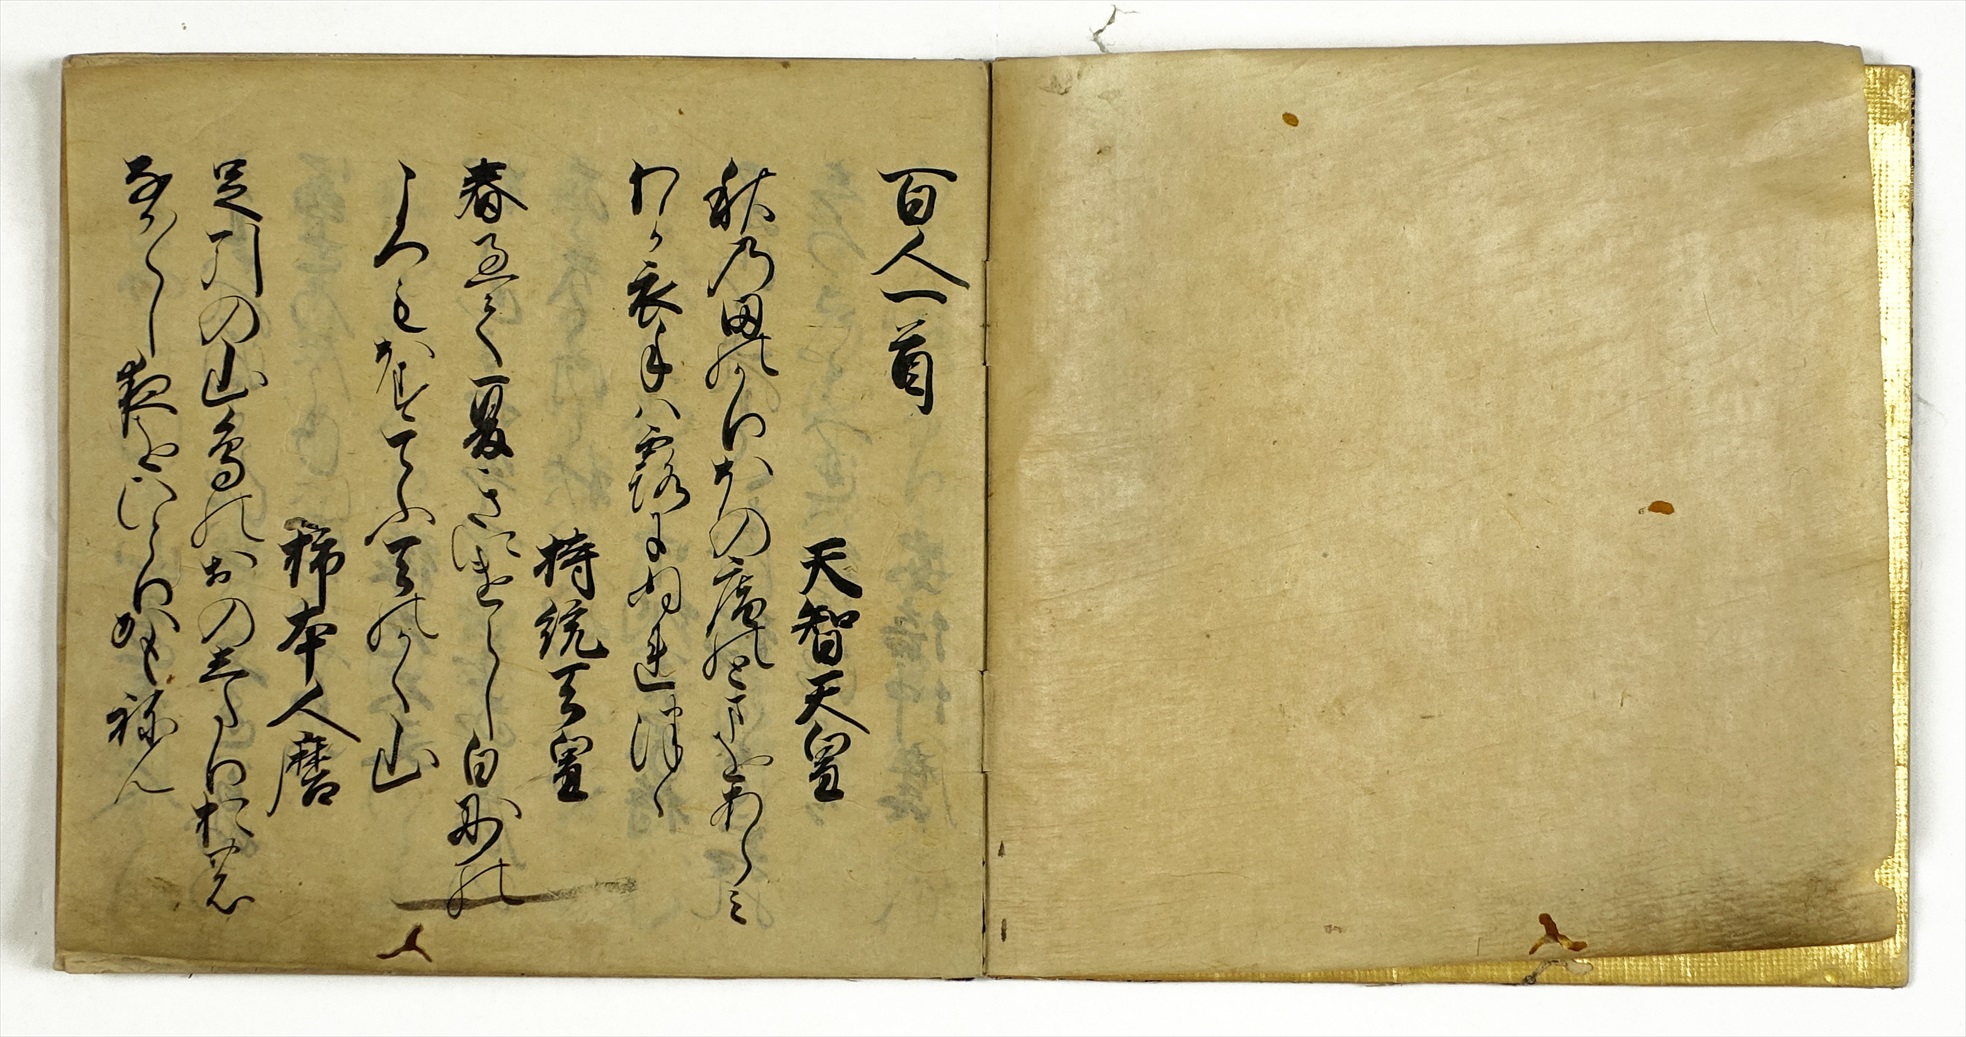 百人一首
天智天皇
秋乃田のかりほの庵のとまをあらみ
わか衣手ハ露にぬれつゝ
持統天皇
春過て夏きにけらし白妙の
ころもほすてふ天のかく山
柿本人麿
足引の山鳥のおのしたりおの
なか〳〵し夜をひとりかもねん